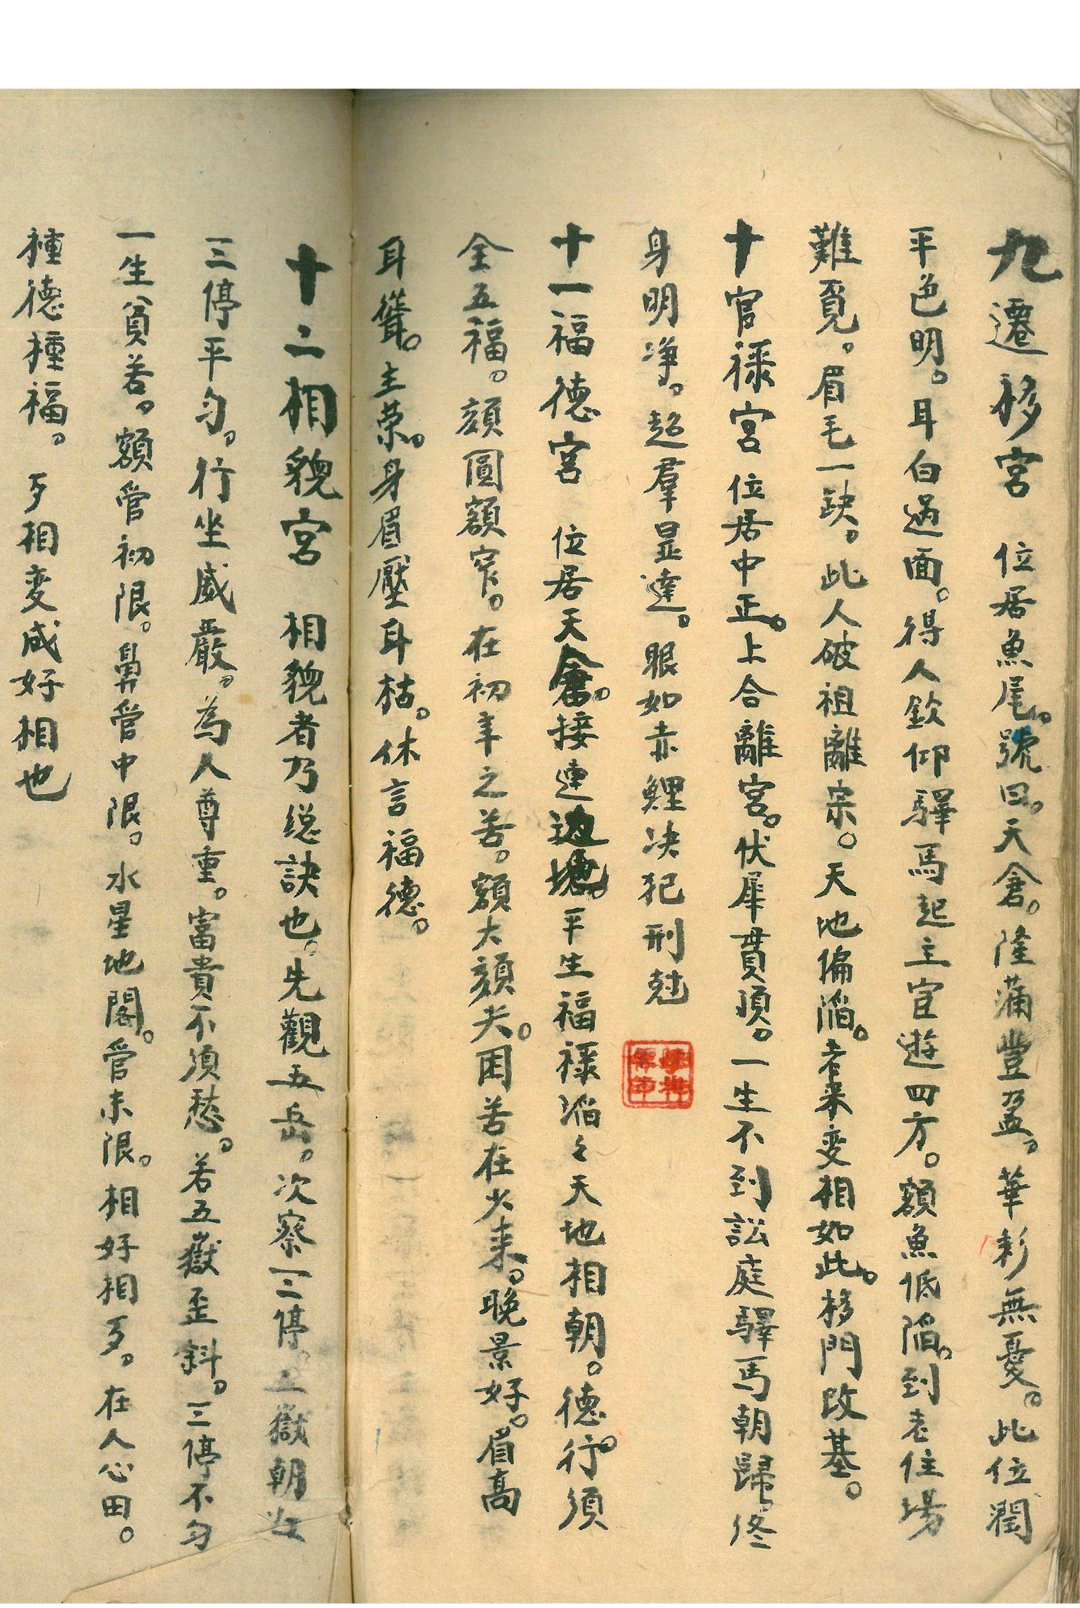 九遷移宮 位居魚尾。號曰。天倉。隆滿豐盈。華彩無憂。此位潤
平色明。耳白過面。得人欽仰驛馬起主官遊四方。額魚低陷。到老住場
難覓。眉毛一缺。此人破祖離宗。天地偏陷。老来变相如此。移門改基。
十官祿宮 位居中正。上合離宮。伏犀貫頂。一生不到訟庭驛馬朝歸。终
身明净。超羣显達。眼如赤鯉决犯刑尅
十一福德宮 位居天倉。接連边塘。平生福祿滔々天地相朝。德行須
全五福。頦圓額窄。在初年之苦。額大頦尖。困苦在火来。晚景好。眉高
耳聳。主荣。身眉壓耳枯。休言福德。
十二相貌宮 相貌者乃総訣也。先觀五岳。次察三停。五嶽朝
三停平匀。行坐威嚴。為人尊重。富貴不須愁。若五嶽歪斜。三停不匀
一生貧若。額管初限。鼻管中限。水星地閣。管末限。相好相歹。在人心田。
種德種福。歹相变成好相也